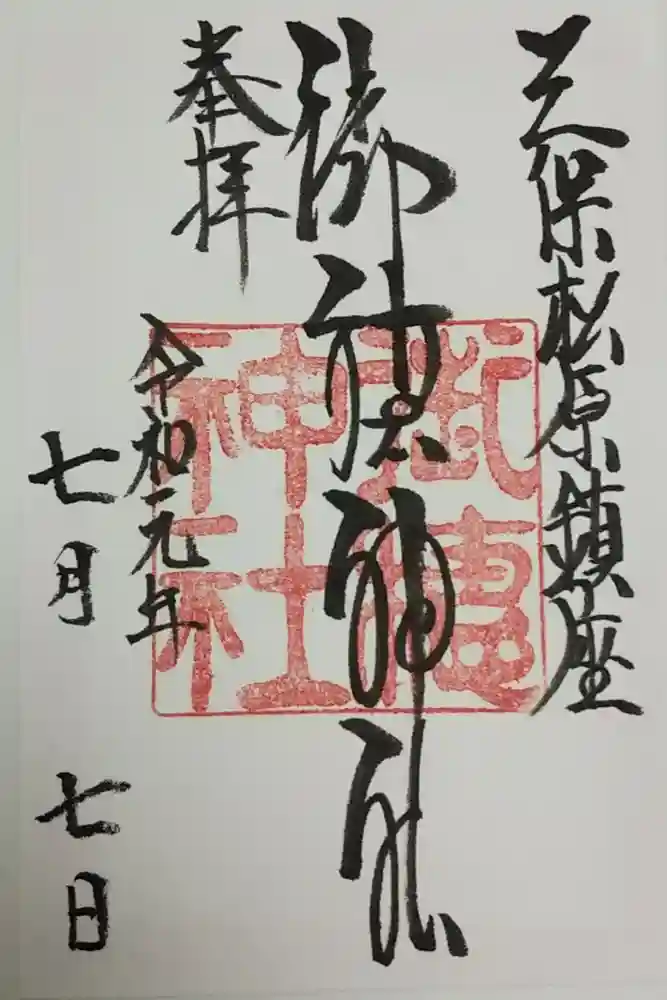 三保松原鎮座
御穂神社
奉拝
令和元年
七月 七日
御穂
神社